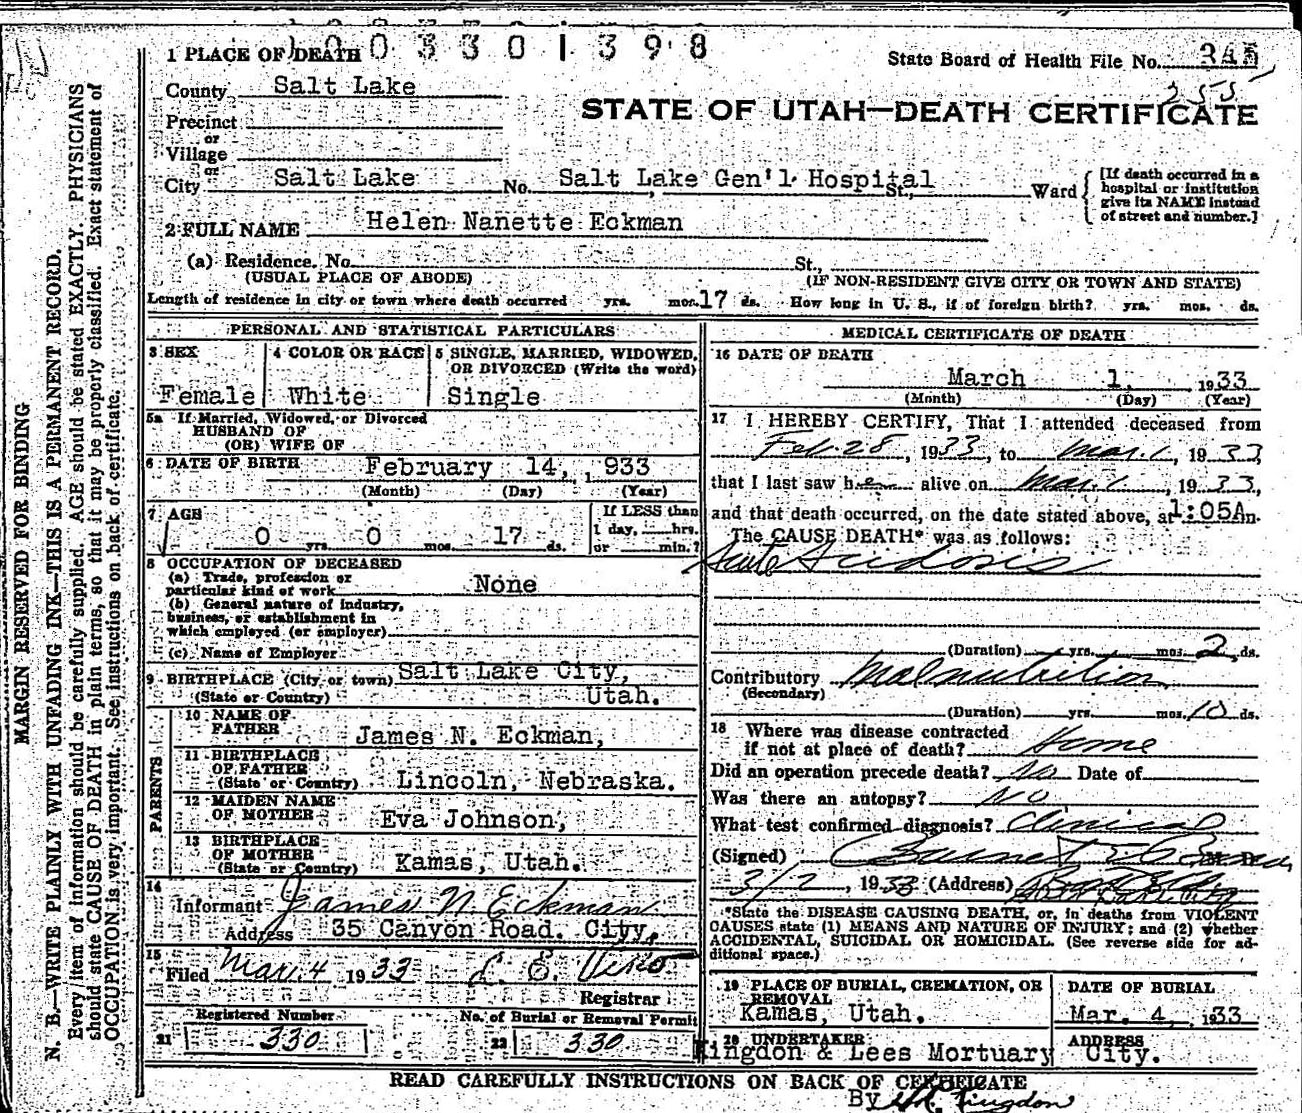 1003301398
1 PLACE OF DEATH
State Board of Health File No.
County Salt Lake
255
STATE OF UTAH—DEATH CERTIFICATE
Precinct
or
Village
or
City Salt Lake No. Salt Lake Gen'l Hospital St., Ward
[If death occurred in a hospital or institution give its NAME instead of street and number.]
2 FULL NAME Helen Nanette Eckman
(a) Residence. No. St.,
(USUAL PLACE OF ABODE) (IF NON-RESIDENT GIVE CITY OR TOWN AND STATE)
Length of residence in city or town where death occurred yrs. mos. 17 ds. How long in U. S., if of foreign birth? yrs. mos. ds.
PERSONAL AND STATISTICAL PARTICULARS
3 SEX 4 COLOR OR RACE 5 SINGLE, MARRIED, WIDOWED,
OR DIVORCED (Write the word)
Female White Single
5a If Married, Widowed, or Divorced
HUSBAND OF
(OR) WIFE OF
6 DATE OF BIRTH February 14, 933
(Month) (Day) (Year)
7 AGE If LESS than
0 yrs. 0 mos. 17 ds. 1 day, hrs.
or min.?
8 OCCUPATION OF DECEASED
(a) Trade, profession or
particular kind of work None
(b) General nature of industry,
business, or establishment in
which employed (or employer)
(c) Name of Employer
9 BIRTHPLACE (City or town) Salt Lake City,
(State or Country) Utah.
PARENTS
10 NAME OF
FATHER James N. Eckman,
11 BIRTHPLACE
OF FATHER
(State or Country) Lincoln, Nebraska.
12 MAIDEN NAME
OF MOTHER Eva Johnson,
13 BIRTHPLACE
OF MOTHER
(State or Country) Kamas, Utah.
14
Informant James N Eckman
Address 35 Canyon Road. City.
15
Filed Mar. 4 1933
Registrar
Registered Number No. of Burial or Removal Permit
21 330 22 330
MEDICAL CERTIFICATE OF DEATH
16 DATE OF DEATH
March 1, 1933
(Month) (Day) (Year)
17 I HEREBY CERTIFY, That I attended deceased from
Feb. 28, 1933, to Mar. 1, 1933,
that I last saw her alive on Mar. 1, 1933,
and that death occurred, on the date stated above, at 1:05A m.
The CAUSE DEATH* was as follows:
Acute Acidosis
(Duration) yrs. mos. 2 ds.
Contributory Malnutrition
(Secondary)
(Duration) yrs. mos. 10 ds.
18 Where was disease contracted
if not at place of death? Home
Did an operation precede death? No Date of
Was there an autopsy? No
What test confirmed diagnosis? Clinical
(Signed) M. D.
3/2, 1933 (Address)
*State the DISEASE CAUSING DEATH, or, in deaths from VIOLENT
CAUSES state (1) MEANS AND NATURE OF INJURY; and (2) whether
ACCIDENTAL, SUICIDAL OR HOMICIDAL. (See reverse side for ad-
ditional space.)
19 PLACE OF BURIAL, CREMATION, OR
REMOVAL
Kamas, Utah.
DATE OF BURIAL
Mar. 4, 1933
20 UNDERTAKER
Kingdon & Lees Mortuary
ADDRESS
City.
READ CAREFULLY INSTRUCTIONS ON BACK OF CERTIFICATE
By Kingdon
MARGIN RESERVED FOR BINDING
N. B.—WRITE PLAINLY WITH UNFADING INK—THIS IS A PERMANENT RECORD.
Every item of information should be carefully supplied. AGE should be stated EXACTLY. PHYSICIANS
should state CAUSE OF DEATH in plain terms, so that it may be properly classified. Exact statement of
OCCUPATION is very important. See instructions on back of certificate.